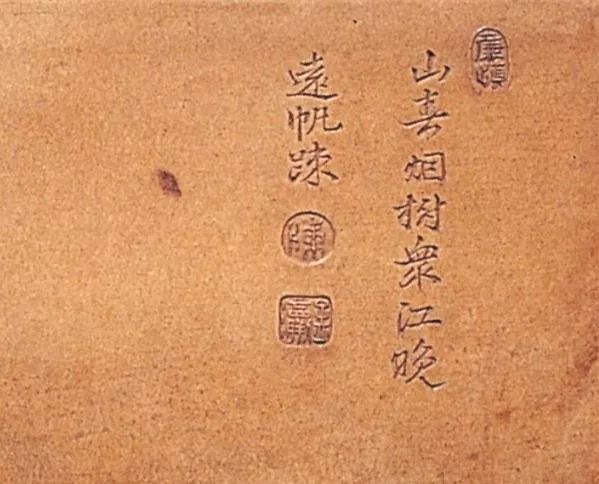 山春烟樹衆江晚
遠帆疎
陳